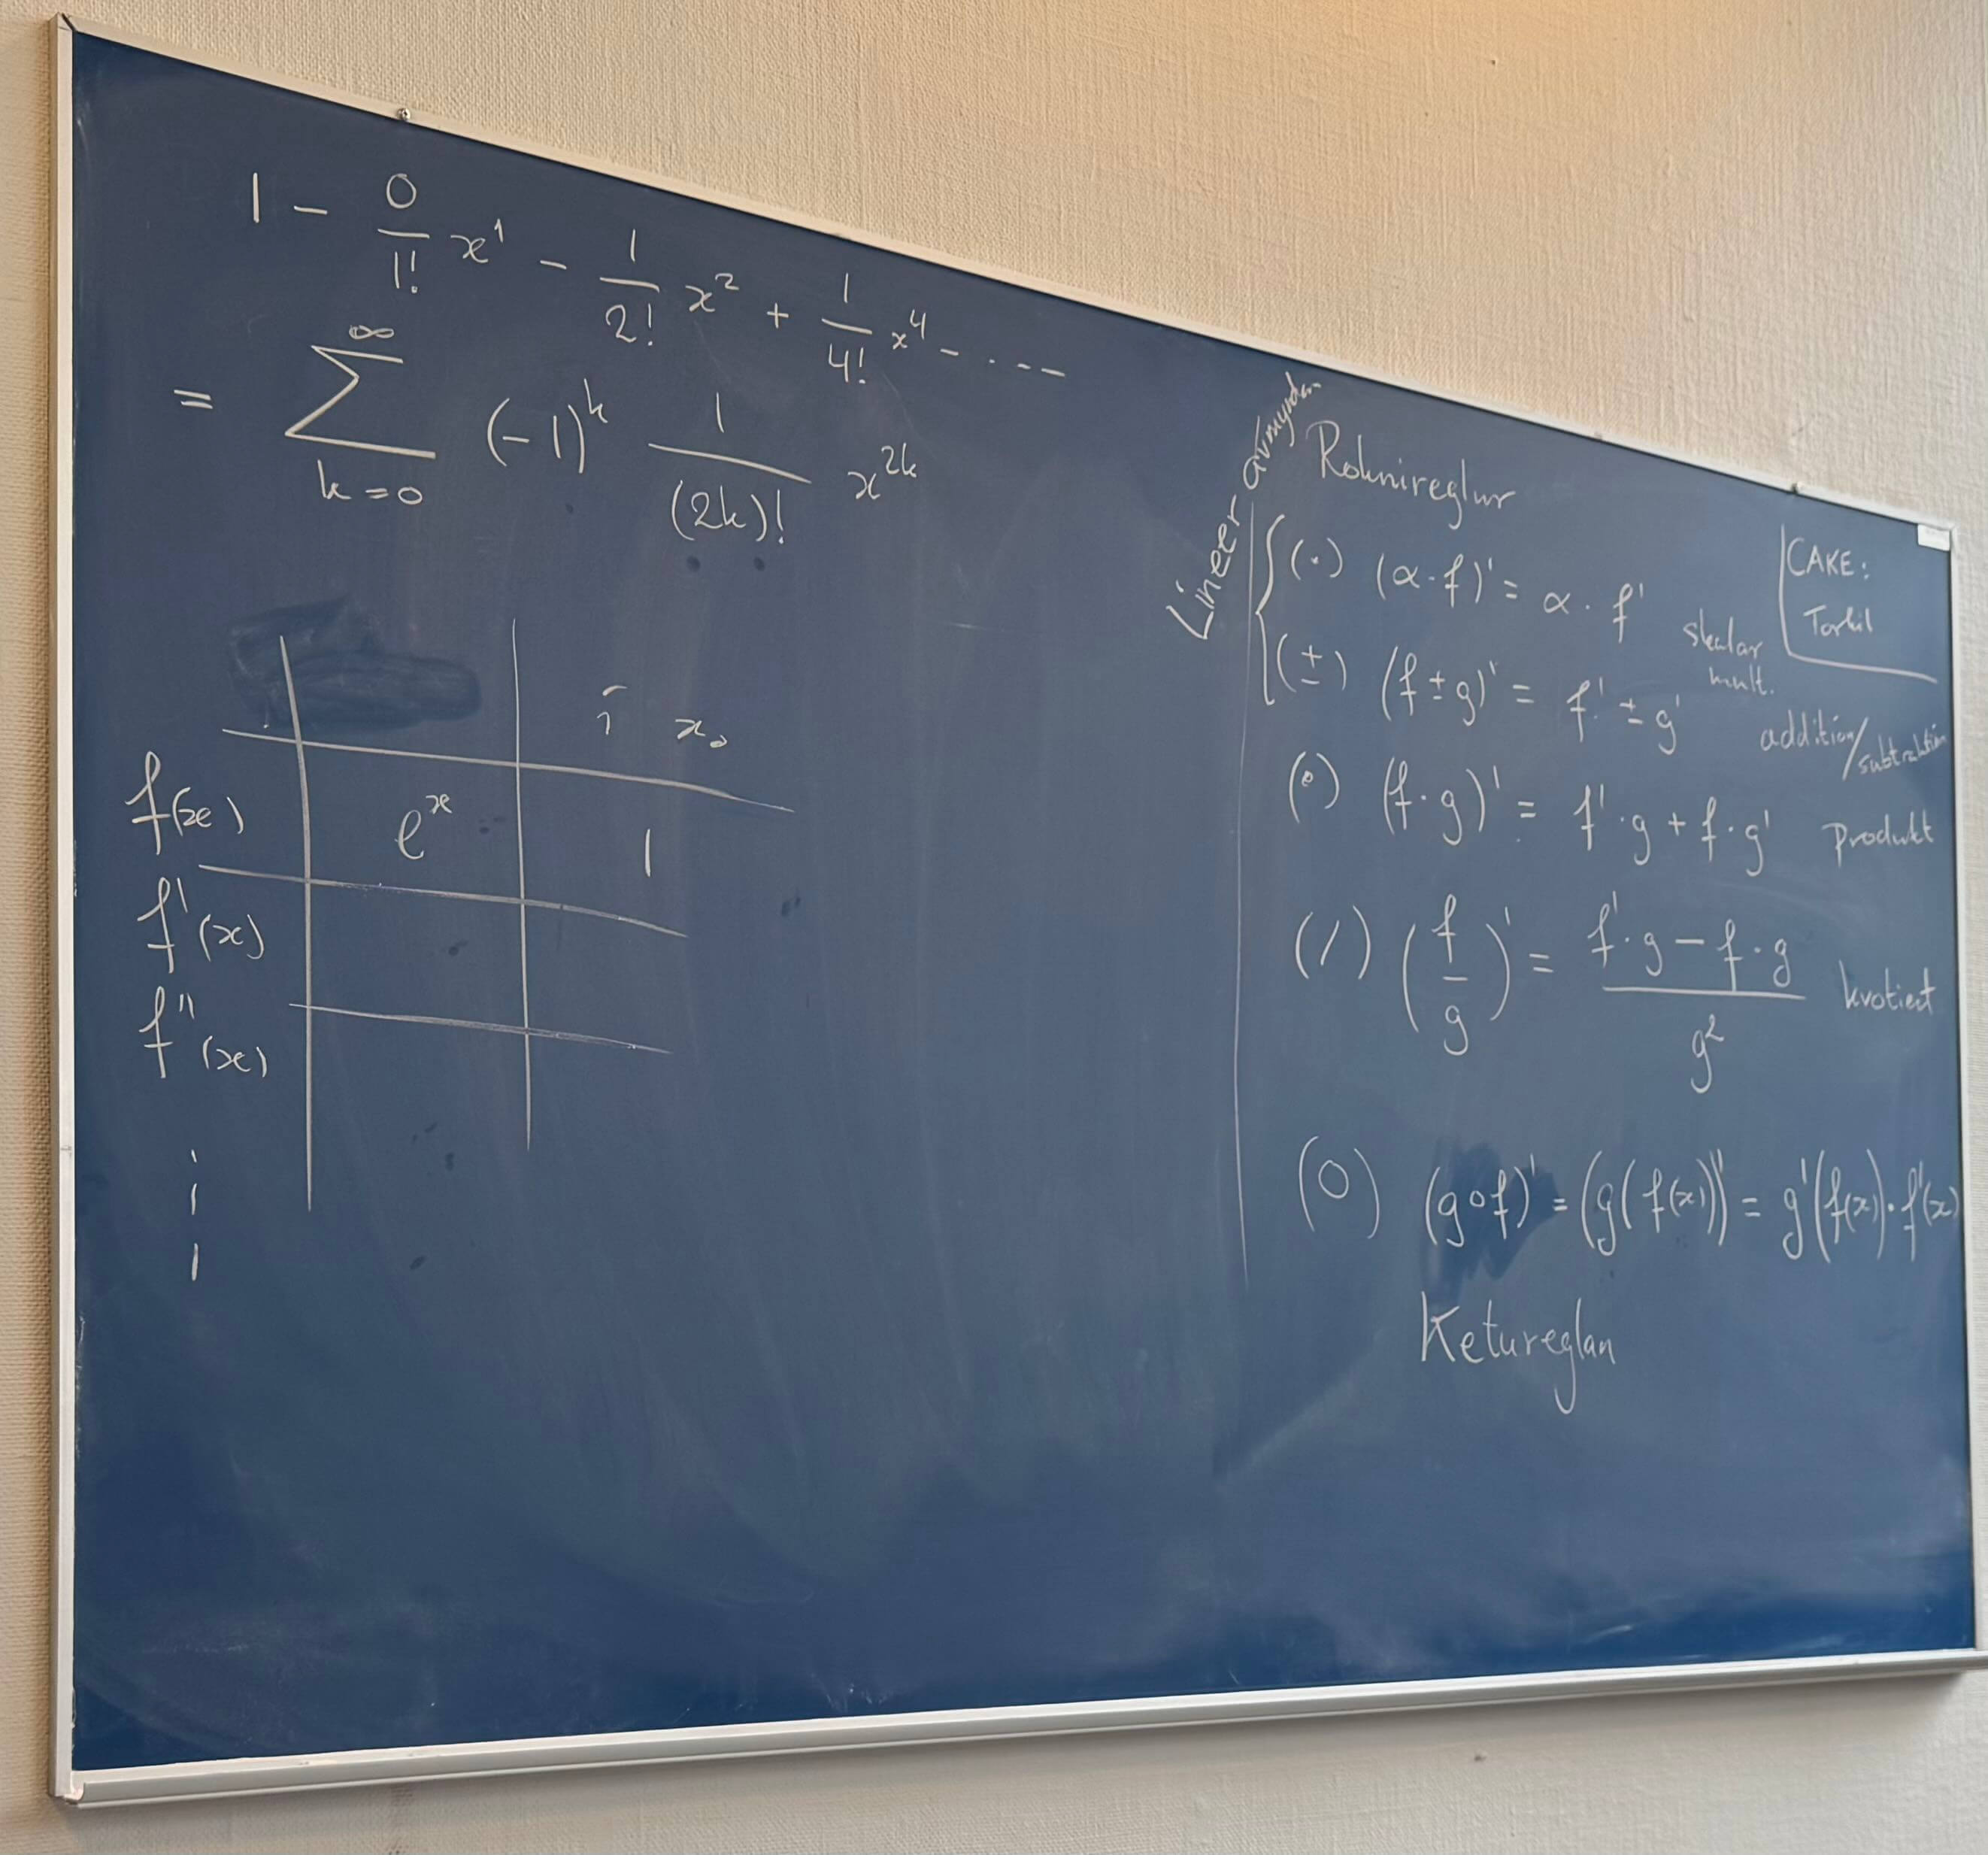 1 - 0/1! x¹ - 1/2! x² + 1/4! x⁴ - ....
= ∞ ∑ k=0 (-1)ᵏ 1/(2k)! x²ᵏ
í x₀
f(x) eˣ 1
f'(x)
f''(x)
Lineer
Roknireglur
CAKE:
Torkil
(·) (α·f)' = α·f' skalar mult.
(±) (f±g)' = f' ± g' addition/subtraktion
(·) (f·g)' = f'·g + f·g' Produkt
(/) (f/g)' = f'·g - f·g / g² kvotient
(O) (g∘f)' = (g(f(x))' = g'(f(x))·f'(x)
Ketureglan